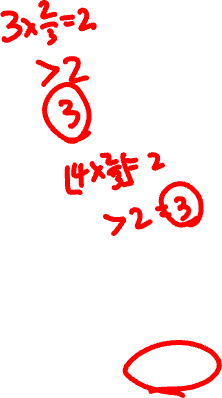 3×2/3=2
>2
3
⌊4×2/3⌋=2
>2=3